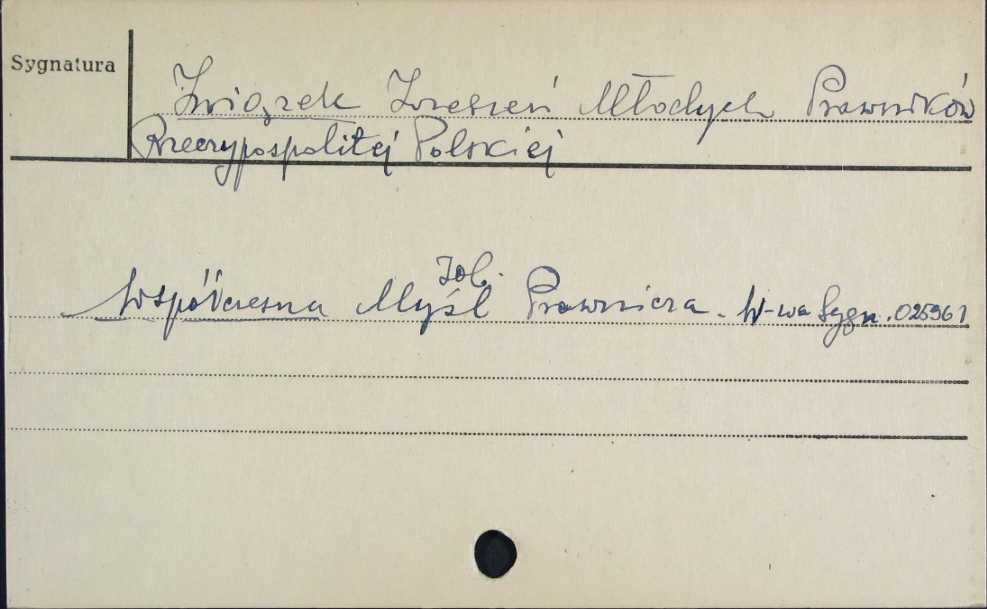 Sygnatura
Związek Zrzeszeń Młodych Prawników
Rzeczypospolitej Polskiej
Zob.
Współczesna Myśl Prawnicza. W-wa Sygn. 025961